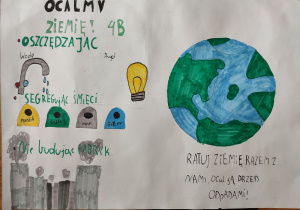 OCALMY
ZIEMIĘ! 4B
• OSZCZĘDZAJĄC
Wodę Prąd
• SEGREGUJĄC ŚMIECI
• Nie budując fabryk
RATUJ ZIEMIĘ RAZEM Z
NAMI, OCAL JĄ PRZED
ODPADAMI!